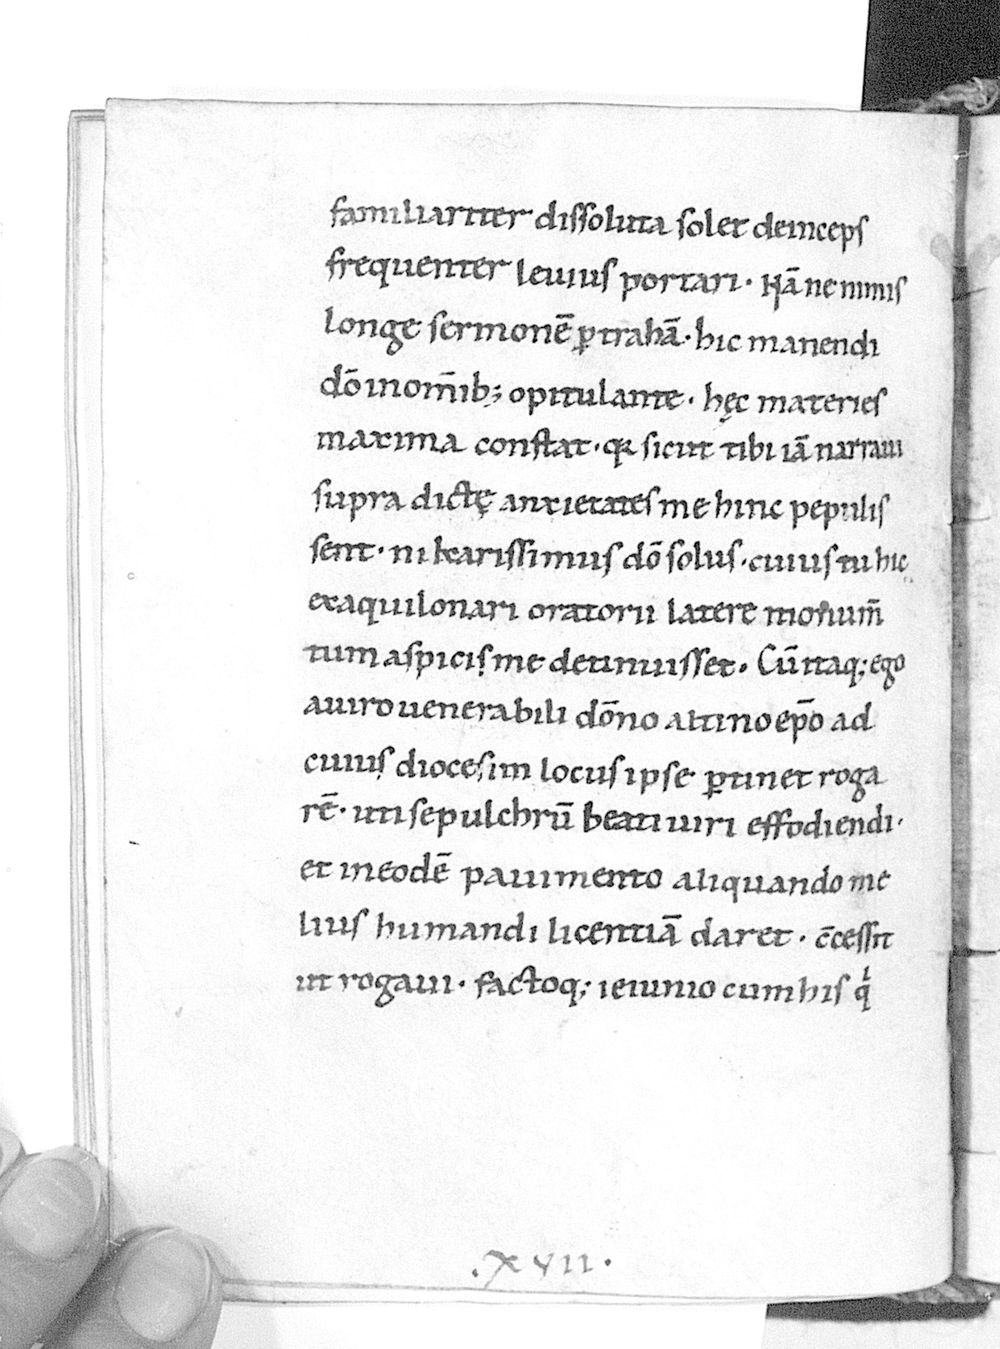 familiariter dissoluta solet deinceps
frequenter leuius portari · Nā ne nimis
longe sermonē ꝑtrahā · hic manendi
dō in om̄ib; opitulante · hęc materies
maxima constat · qꝛ sicut tibi iā narraui
supra dictę anxietates me hinc pepulis
sent · ni karissimus dō solus · cuius tu hic
ex aquilonari oratorii latere monum̄
tum aspicis me detinuisset · Cū itaq; ego
a uiro uenerabili dōno altino ep̄o ad
cuius diocesim locus ipse ꝑtinet roga
rē · uti sepulchrū beati uiri effodiendi ·
et in eodē pauimento aliquando me
lius humandi licentiā daret · c̄cessit
ut rogaui · factoq; ieiunio cum his q
· XVII ·